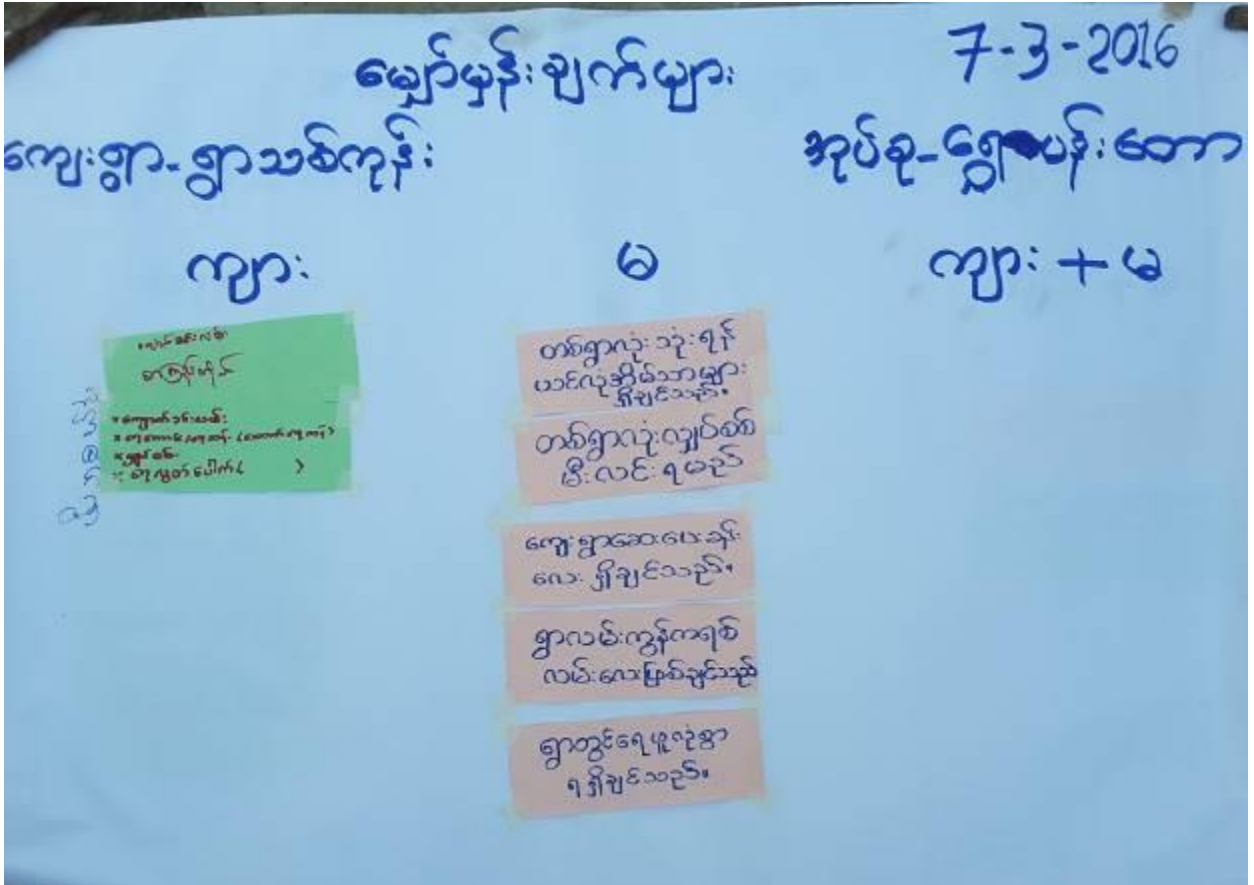 မျှော်မှန်းချက်များ
7-3-2016
ကျေးရွာ-ရွာသစ်ကုန်း
အုပ်စု-ရွှေပန်းတော
ကျား
မ
ကျား + မ
စာကြည့်တိုက်
တစ်ရွာလုံးသုံးရန်
ယင်လုံအိမ်သာများ
ရှိချင်သည်။
တစ်ရွာလုံးလျှပ်စစ်
မီးလင်းရမည်
ကျေးရွာဆေးပေးခန်း
လေးရှိချင်သည်။
ရွာလမ်းကွန်ကရစ်
လမ်းလေးဖြစ်ချင်သည်
ရွာတွင်ရေဖူလုံစွာ
ရရှိချင်သည်။